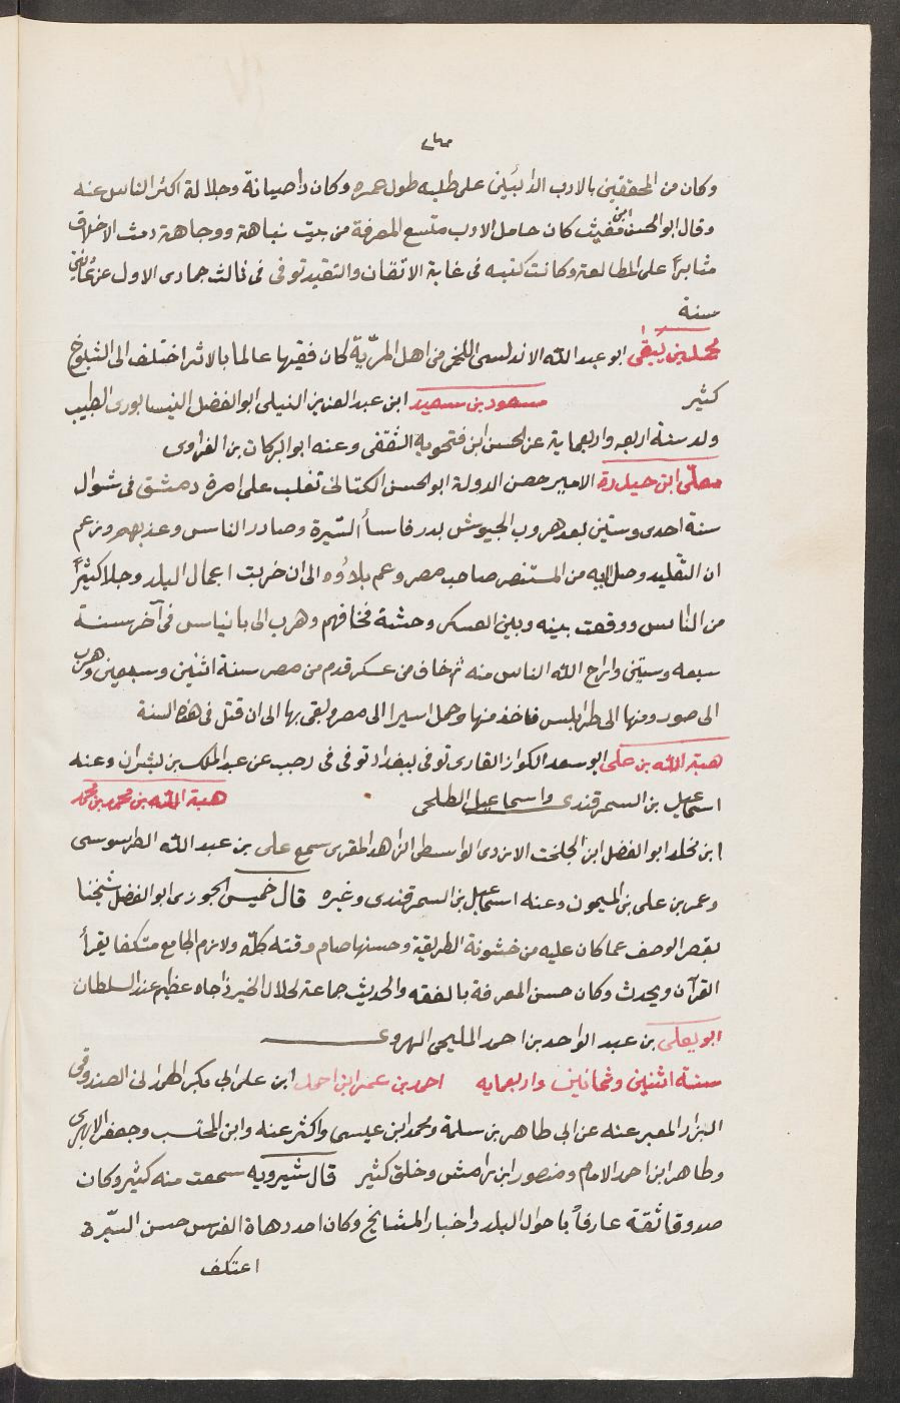 وكان من المحققين بالادب الدائبين على طلبه طول عمره وكان ذا صيانة وجلالة اكثر الناس عنه
وقال ابو الحسن ابن مغيث كان حامل الادب متسع المعرفة من بيت نباهة ووجاهة دمث الاخلاق
مثابراً على المطالعة وكانت كتبه فى غاية الاتقان والتقييد توفى فى ثالث جمادى الاول عن ثمانين
سنة
محمد بن يبقى ابو عبد الله الاندلسى اللخمى من اهل المريّة كان فقيها عالما بالاثر اختلف الى الشيوخ
كثير مسعود بن سعيد ابن عبد العزيز النيلى ابو الفضل النيسابورى الطبيب
ولد سنة اربعه واربعماية عن الحسن ابن فتحويه الثقفى وعنه ابو البركات بن الفراوى
معلّى ابن حيدرة الامير حصن الدولة ابو الحسن الكتانى تغلب على امرة دمشق فى شوال
سنة احدى وستين بعد هروب الجيوش بدر فاساأ السّيرة وصادر الناس وعذبهم وزعم
ان التقليد وصل اليه من المستنصر صاحب مصر وعم بلاؤه الى ان خربت اعمال البلد وجلا كثيرٌ
من الناس ووقعت بينه وبين العسكر وحشة فخافهم وهرب الى بانياس فى آخر سنة
سبعه وستين واراح الله الناس منه ثم خاف من عسكر قدم من مصر سنة اثنين وسبعين وهرب
الى صور ومنها الى طرابلس فاخذ منها وحمل اسيرا الى مصر وبقى بها الى ان قتل فى هذه السنة
هبة الله بن على ابو سعد الكواز القارى توفى ببغداد توفى فى رجب عن عبد الملك بن بشران وعنه
اسماعيل بن السمرقندى واسماعيل الطلحى هبة الله بن محمد بن محمد
ابن مخلد ابو الفضل ابن الجلخت الازدى الواسطى الزاهد المقرى سمع على بن عبد الله الطرسوسى
وعمر بن على بن الميمون وعنه اسماعيل بن السمرقندى وغيره قال خميس الجوزى ابو الفضل شيخنا
يقصر الوصف عما كان عليه من خشونة الطريقة وحسنها صام وقته كلّه ولازم الجامع متكفا يقرأ
القرآن ويحدث وكان حسن المعرفة بالفقه والحديث جماعة لخلال الخير ذا جاه عظيم عند السلطان
ابو يعلى بن عبد الواحد بن احمد المليحى الهروى
سنة اثنين وثمانين واربعمايه احمد بن عمر ابن احمد ابن على ابى بكر الهمدانى الصندوقى
البزاز المعبر عنه عن ابى طاهر بن سلمة ومحمد ابن عيسى واكثر عنه وابن المحتسب وجعفر الابهرى
وطاهر ابن احمد الامام ومنصور ابن رامش وخلق كثير قال شيرويه سمعت منه كثير وكان
صدوقا ثقة عارفاً باحوال البلد واخبار المشايخ وكان احد دهاة الفرس حسن السّيرة
اعتكف